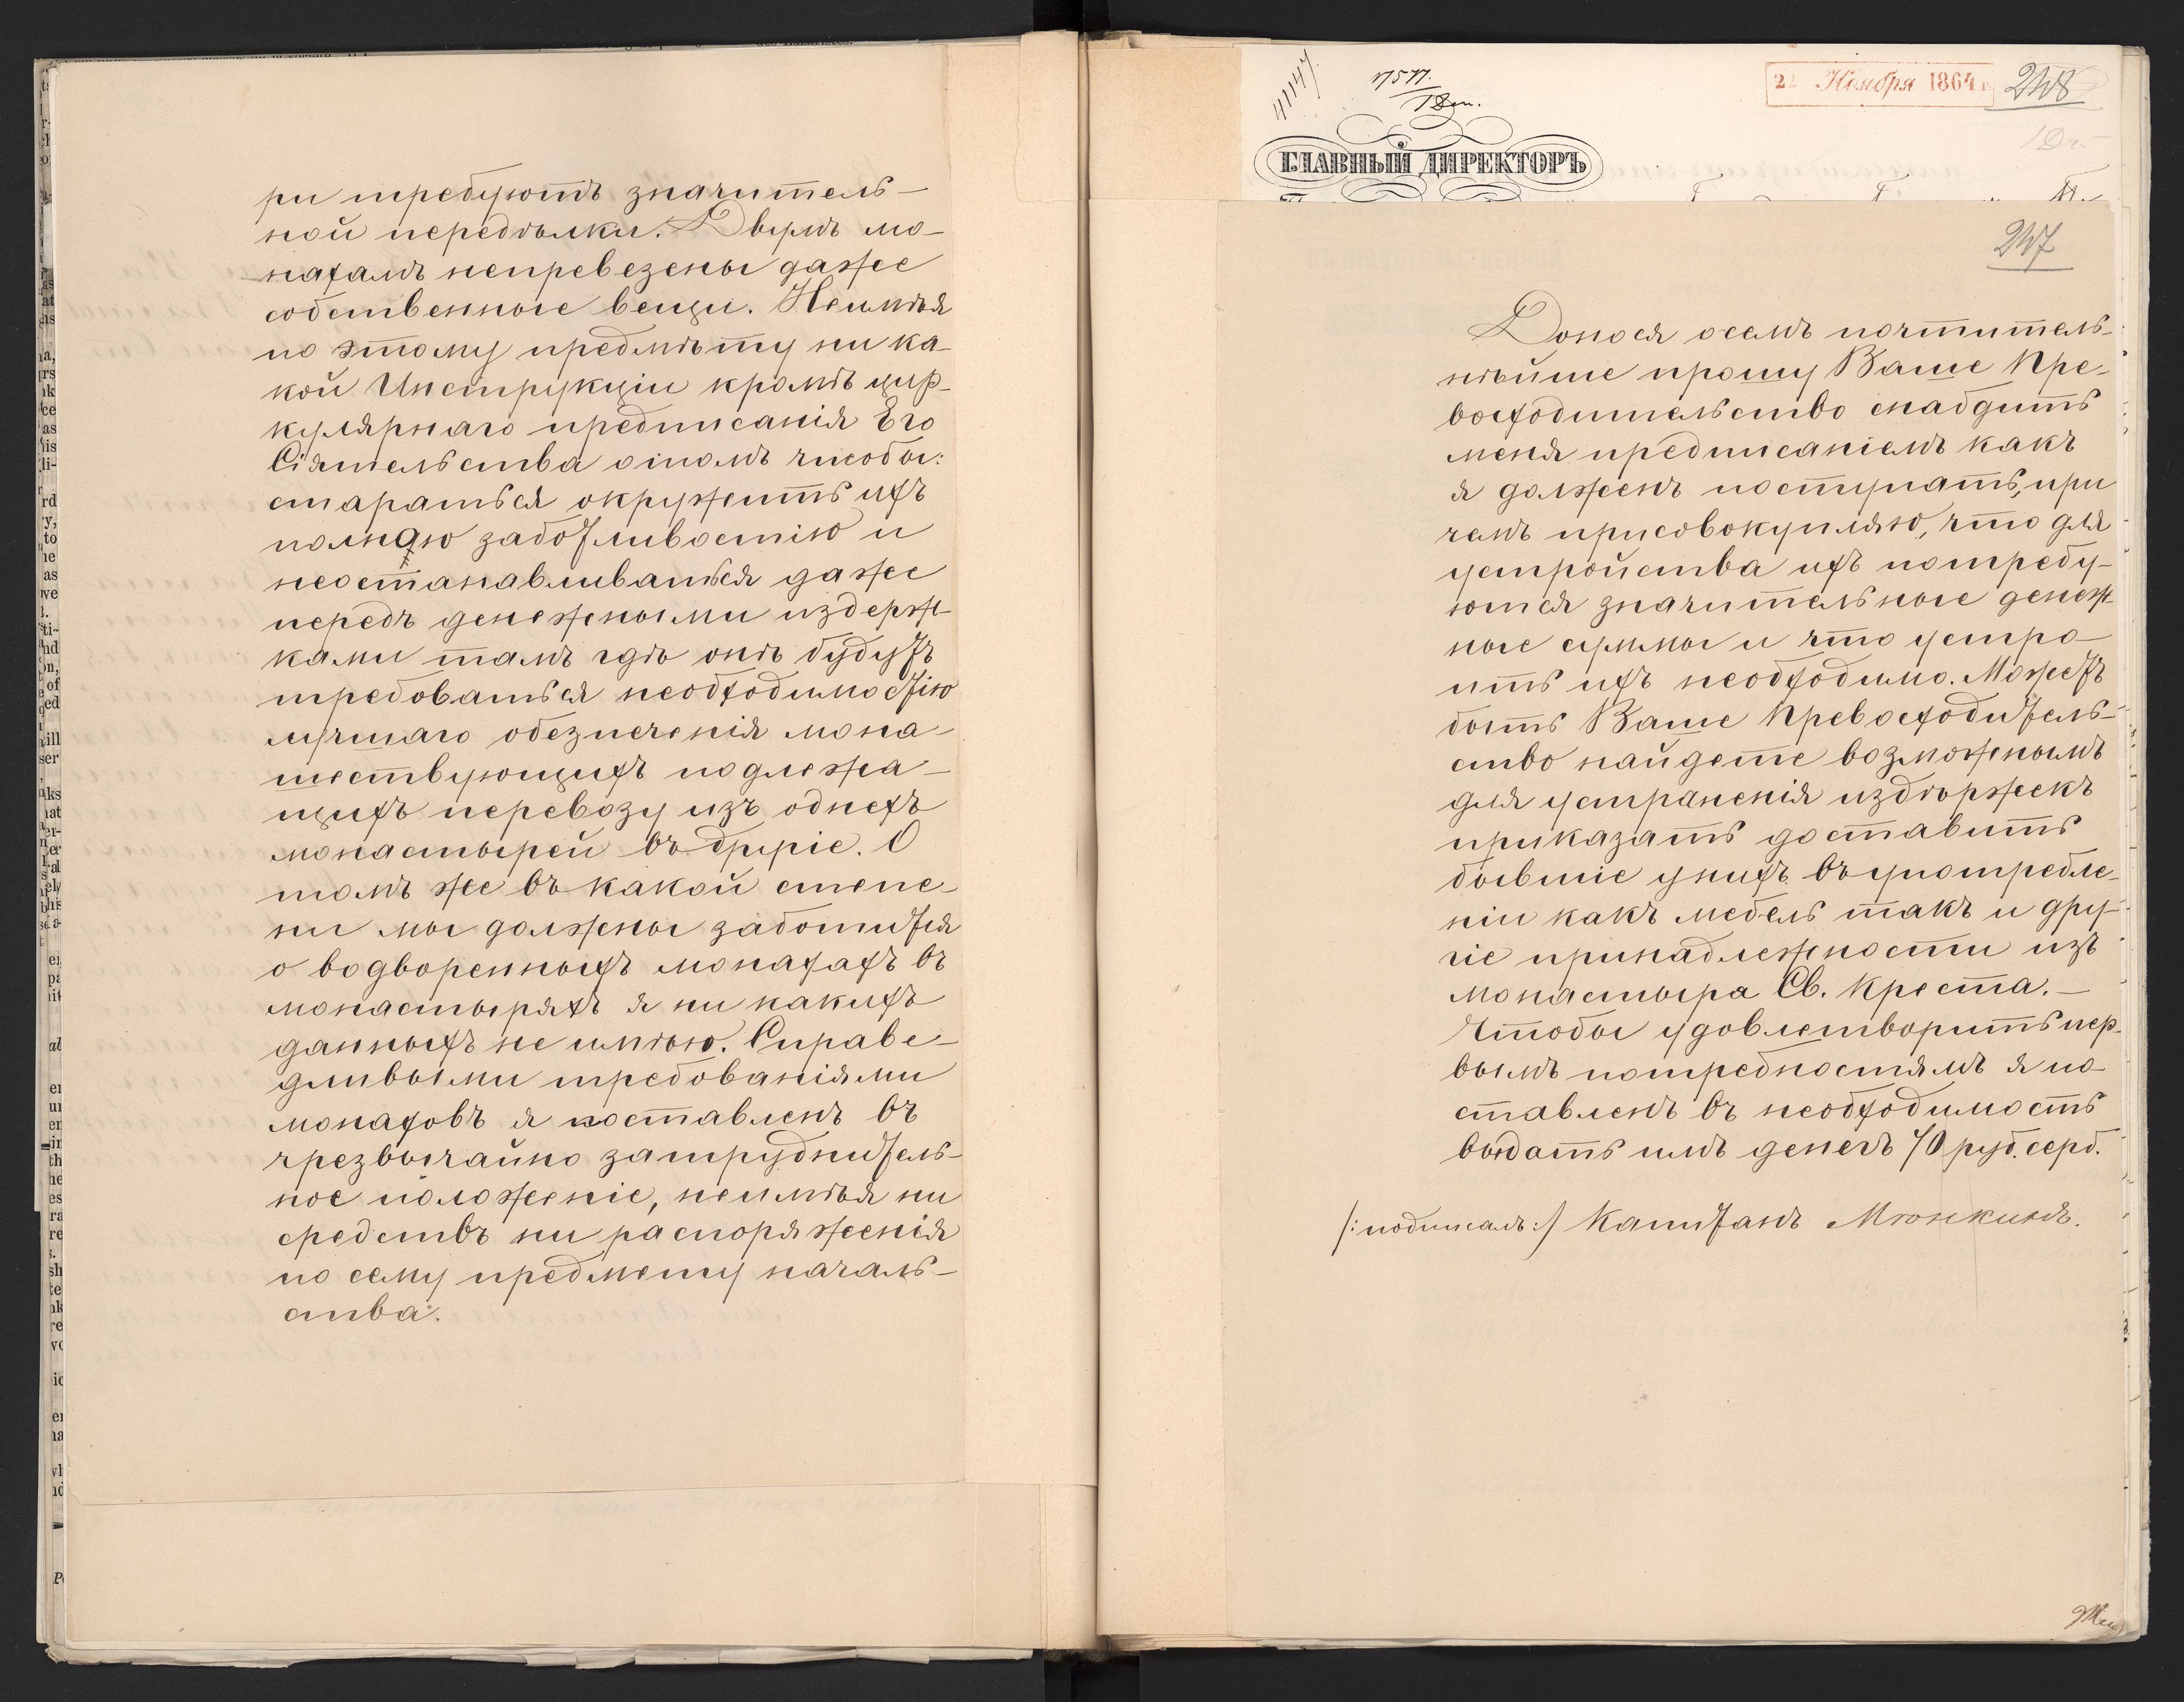 ри требуютъ значитель-
ной передѣлки. Двумъ мо-
нахамъ непревезены даже
собственные вещи. Неимѣя
по этому предмѣту ни ка-
кой Инструкціи кромѣ цир-
кулярнаго предписанія Его
Сіятельства о томъ чтобы:
стараться окружить ихъ
полною заботливостію и
неостанавливаться даже
передъ денежными издерж-
ками тамъ гдѣ онѣ будутъ
требоваться необходимостію
лучшаго обезпеченія мона-
шествующихъ подлежа-
щихъ перевозу изъ однехъ
монастырей въ другіе. О
томъ же въ какой степе-
ни мы должны заботится
о водворенныхъ монахахъ въ
монастыряхъ я ни какихъ
данныхъ не имѣю. Справе-
дливыми требованіями
монаховъ я поставленъ въ
чрезвычайно затруднитель-
ное положеніе, неимѣя ни
средствъ ни распоряженія
по сему предмету началь-
ства.
41147
17577.
1 Деп.
22 Ноября 1864 г.
248
ГЛАВНЫЙ ДИРЕКТОРЪ
247
Донося осемъ почтитель-
нѣйше прошу Ваше Пре-
восходительство снабдить
меня предписаніемъ какъ
я долженъ поступать, при
чемъ присовокупляю, что для
устройства ихъ потребу-
ются значительные денеж-
ные суммы и что устро-
ить ихъ необходимо. Можетъ
быть Ваше Превосходитель-
ство найдете возможнымъ
для устраненія издѣржекъ
приказать доставить
бывшіе унихъ въ употребле-
ніи какъ мебель такъ и дру-
гіе принадлежности изъ
монастыра Св. Креста. –
Чтобы удовлетворить пер-
вымъ потребностямъ я по-
ставленъ въ необходимость
выдать имъ денегъ 70 руб. серб.
/:подписалъ:/ Капитанъ Мюнкинъ.